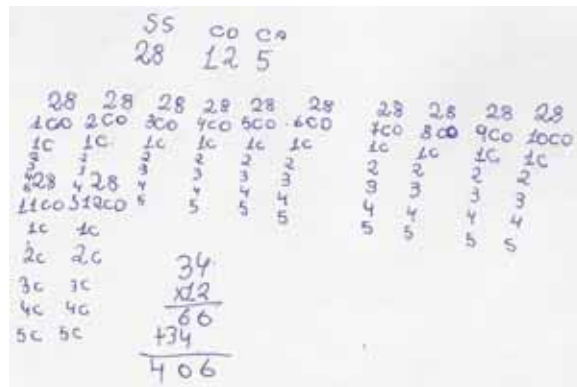 SS CO CA
28 12 5
28 28 28 28 28 28 28 28 28 28
1CO 2CO 3CO 4CO 5CO 6CO 7CO 8CO 9CO 10CO
1C 1C 1C 1C 1C 1C 1C 1C 1C 1C
2 2 2 2 2 2 2 2 2 2
3 3 3 3 3 3 3 3 3 3
4 4 4 4 4 4 4 4 4 4
5 5 5 5 5 5 5 5 5 5
28 28
11CO 12CO
1C 1C
2C 2C
3C 3C
4C 4C
5C 5C
34
x12
66
+34
406